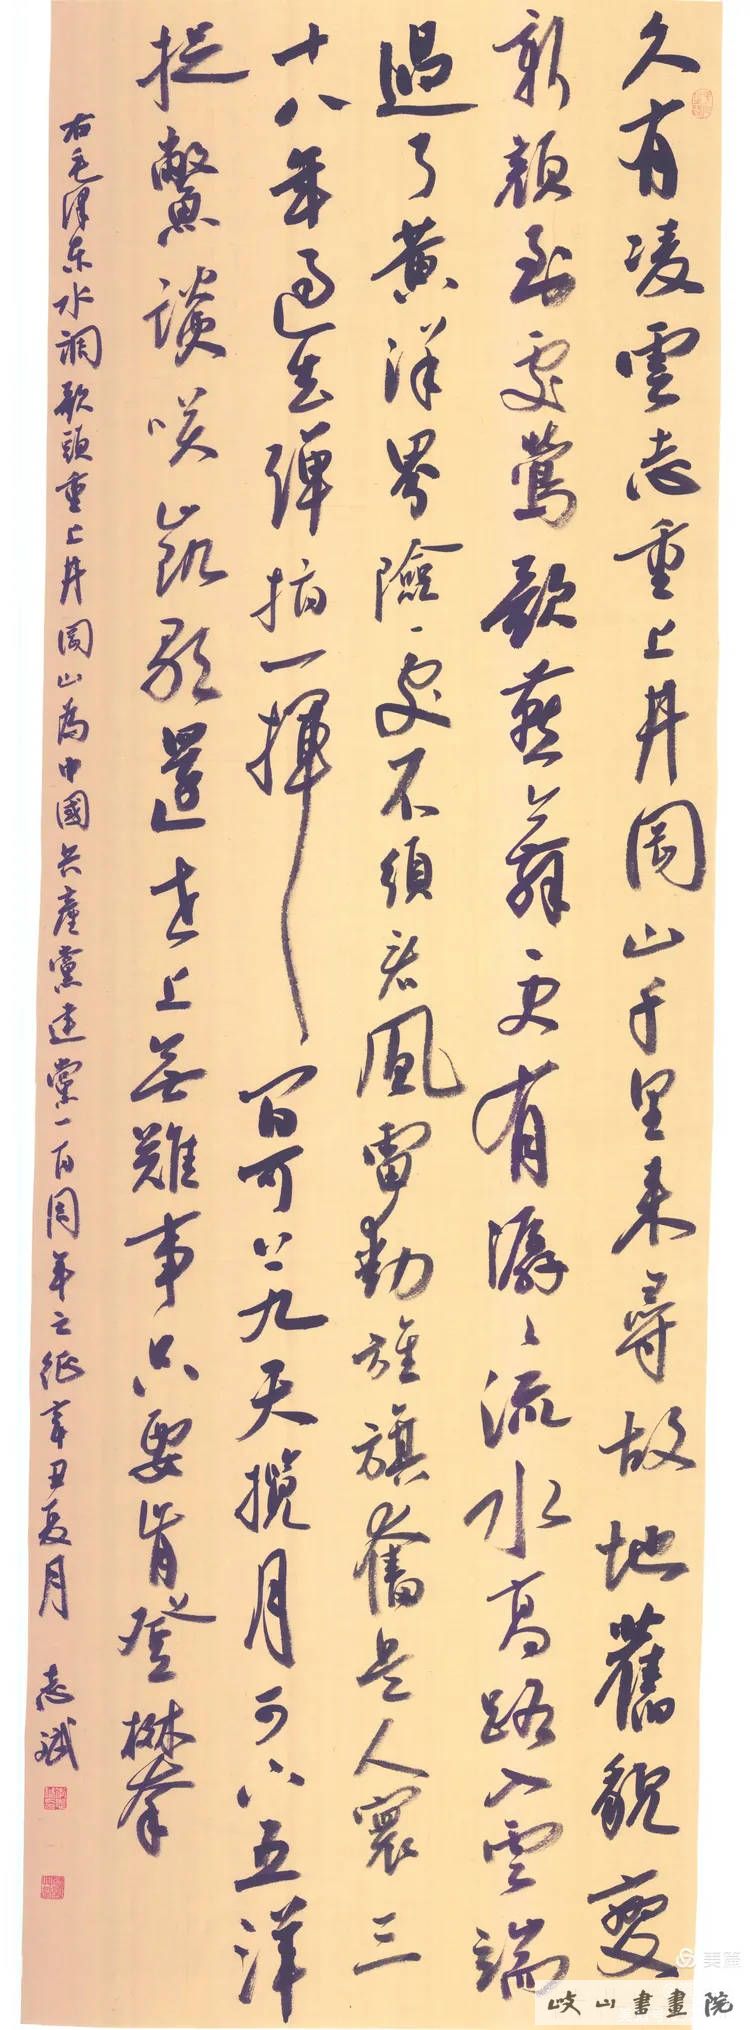 久有凌雲志重上井岡山千里來尋故地舊貌變
新顏到處鶯歌燕舞更有潺々流水高路入雲端
過了黃洋界險處不須看風雷動旌旗奮是人寰三
十八年過去彈指一揮間可上九天攬月可下五洋
捉鱉談笑凱歌還世上無難事只要肯登攀
右毛澤東水調歌頭重上井岡山為中國共產黨建黨一百周年之征辛丑夏月 志斌
美篇
岐山書畫院